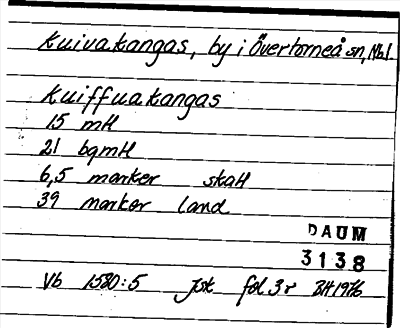 Kuivakangas, by i Övertorneå sn, Nbl
Kuiffuakangas
15 mH
21 bgmH
6,5 marker skaH
39 marker land
DAUM
3138
Vb 1580:5 Jok fol 3r BH 1976